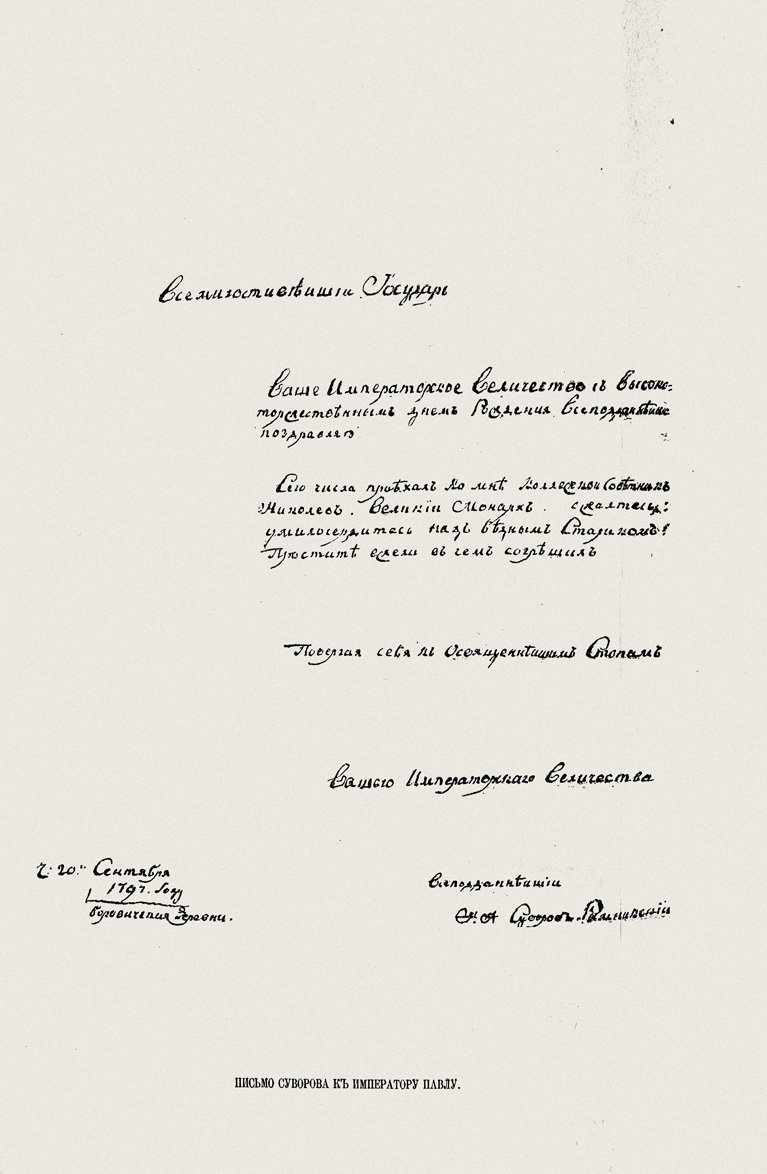 Всемилостивѣишіи Государь
Ваше Императорское Величество съ Высоко-
торжественнымъ днемъ Рожденія Всеподданнѣише
поздравляю
Сего числа приѣхалъ ко мнѣ Коллежскои Совѣтникъ
Николевъ. Великіи Монархъ. сжальтесь:
умилосердитесь надъ бѣднымъ Старикомъ!
Простите ежели въ чемъ согрѣшилъ
Повергая себя къ Освященнѣишимъ Стопамъ
Вашего Императорскаго Величества
Ч: 20.го Сентября
1797. Году
Боровичскія деревни.
всеподданнѣишіи
Гр. А Суворовъ-Рымникскіи
ПИСЬМО СУВОРОВА КЪ ИМПЕРАТОРУ ПАВЛУ.